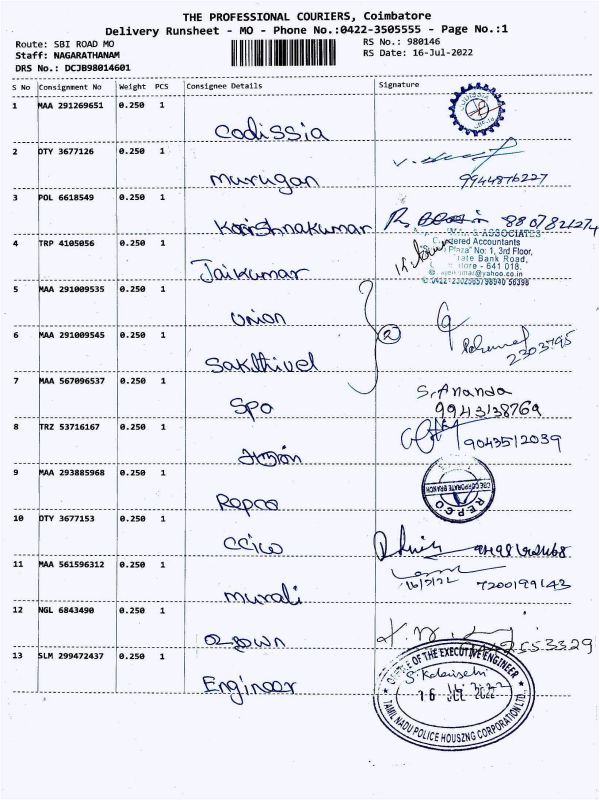 THE PROFESSIONAL COURIERS, Coimbatore
Delivery Runsheet - MO - Phone No.:0422-3505555 - Page No.:1
Route: SBI ROAD MO RS No.: 980146
Staff: NAGARATHANAM RS Date: 16-Jul-2022
DRS No.: DCJB98014601
S No Consignment No Weight PCS Consignee Details Signature
1 MAA 291269651 0.250 1
Codissia
2 DTY 3677126 0.250 1
Murugan 9944876227
3 POL 6618549 0.250 1
Krishnakumar 8807821274
& ASSOCIATES
4 TRP 4105056 0.250 1 Accountants
Plaza" No: 1, 3rd Floor,
Bank Road,
641 018.
Jaikumar
5 MAA 291009535 0.250 1
Union
6 MAA 291009545 0.250 1 2
Sakthivel 2303795
7 MAA 567096537 0.250 1 S. Ananda
Spa 9943138769
8 TRZ 53716167 0.250 1 9043512039
9 MAA 293885968 0.250 1 CBE CORPORATE BRANCH
Repco REPCO
10 DTY 3677153 0.250 1
11 MAA 561596312 0.250 1 16/7/22 7200199143
Murali
12 NGL 6843490 0.250 1
13 SLM 299472437 0.250 1 OFFICE OF THE EXECUTIVE ENGINEER
16 JUL 2022
Engineer TAMIL NADU POLICE HOUSZNG CORPORATION LTD.,